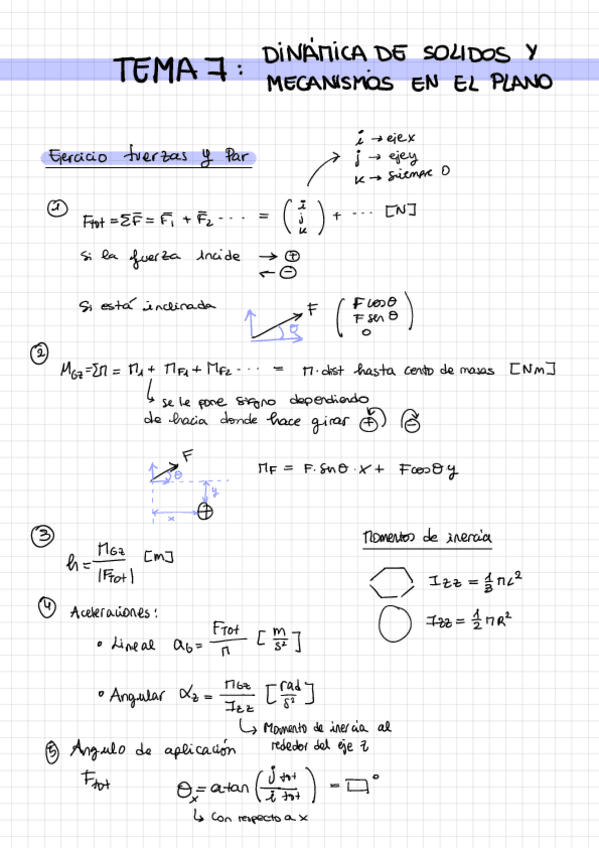 TEMA 7: DINÁMICA DE SOLIDOS Y
MECANISMOS EN EL PLANO
Ejercicio fuerzas y Par
i → eje x
j → eje y
k → siempre 0
① Ftot = ΣF̄ = F̄₁ + F̄₂ ... = (i j k) + ... [N]
Si la fuerza incide → ⊕
← ⊖
Si está inclinada
F
θ
(F cosθ
F senθ
0)
② M_Gz = ΣM = M₁ + M_F1 + M_F2 ... = M·dist hasta cento de masas [Nm]
↳ se le pone signo dependiendo
de hacia donde hace girar ⊕ ⊖
F
θ
y
x
M_F = F·senθ·x + Fcosθ y
③ h = M_Gz / |Ftot| [m]
Momentos de inercia
Izz = 1/3 ML²
Izz = 1/2 MR²
④ Aceleraciones:
• Lineal a_G = Ftot / M [m/s²]
• Angular α_z = M_Gz / Izz [rad/s²]
↳ Momento de inercia al
rededor del eje z
⑤ Angulo de aplicación
Ftot
θx = atan (j tot / i tot) = □°
↳ Con respecto a x